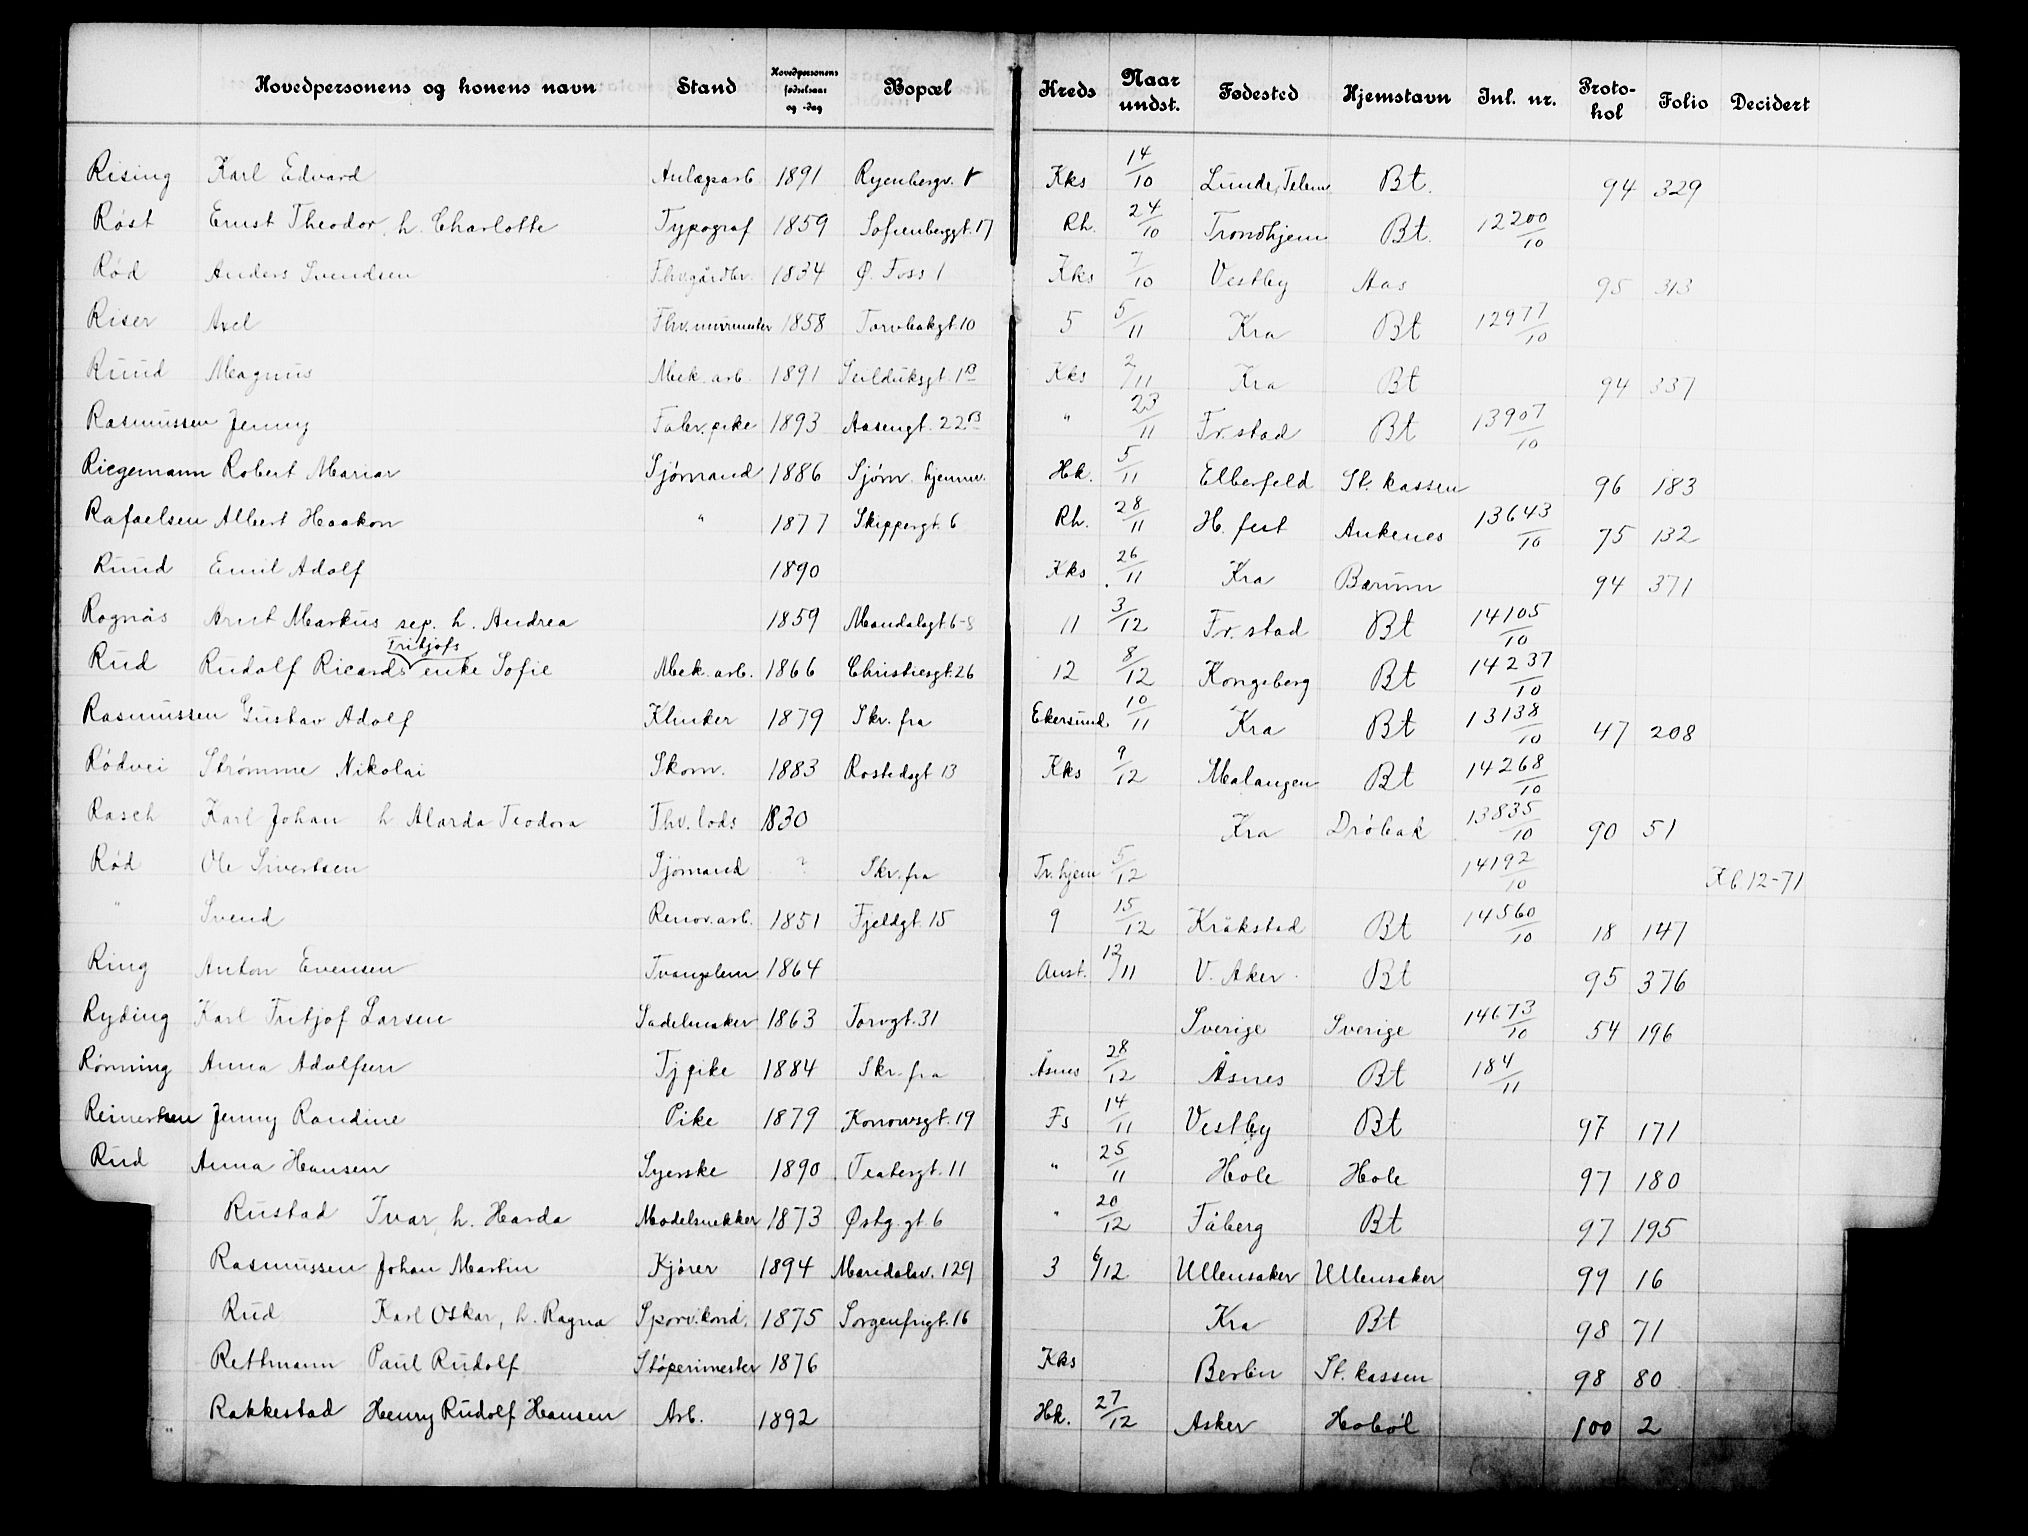 Hovedpersonens og konens navn Stand Hovedpersonens fødselsaar og -dag Bopæl Kreds Naar undst. Fødested Hjemstavn Inl. nr. Protokol Folio Decidert
Rising Karl Edvard Anlægsarb. 1891 Ryenbergv. Kks 14/10 Lunde, Telem. Bt. 94 329
Røst Ernst Theodor, h. Charlotte Typograf 1859 Sofienberggt. 17 Rh. 24/10 Trondhjem Bt. 12200/10
Rød Anders Svendsen Fhv. gårdbr. 1834 Ø. Foss 1 Kks 7/10 Vestby Aas 95 313
Riser Axel Fhv. murmester 1858 Torvbakgt. 10 5 5/11 Kra Bt 12977/10
Ruud Magnus Mek. arb. 1891 Seilduksgt. 1B Kks 2/11 Kra Bt 94 337
Rasmussen Jenny Fabr. pike 1893 Aasengt. 22B " 23/11 Fr.stad Bt 13907/10
Riegemann Robert Marian Sjømand 1886 Sjøm. hjemm. Hk. 5/11 Elberfeld St. kassen 96 183
Rafaelsen Albert Haakon " 1877 Skippergt. 6 Rh. 28/11 H. fest Ankenes 13643/10 75 132
Ruud Emil Adolf 1890 Kks 26/11 Kra Bærum 94 371
Rognås Arnt Markus sep. h. Andrea 1859 Mandalsgt. 6-8 11 3/12 Fr.stad Bt 14105/10
Rud Rudolf Ricards Tritjofs enke Sofie Mek. arb. 1866 Christiesgt. 26 12 8/12 Kongsberg Bt 14237/10
Rasmussen Gustav Adolf Klinker 1879 Skr. fra Ekersund 10/11 Kra Bt 13138/10 47 208
Rødvei Strømme Nikolai Skom. 1883 Rostedsgt. 13 Kks 9/12 Malangen Bt 14268/10
Rasch Karl Johan h Alarda Teodora Fhv. lods 1830 Kra Drøbak 13835/10 90 51
Rød Ole Sivertsen Sjømand ? Skr. fra Tr.hjem 5/12 14192/10 K6.12-71
" Svend Renov. arb. 1851 Fjeldgt. 15 9 15/12 Kråkstad Bt 14560/10 18 147
Ring Anton Evensen Tvangslem 1864 Anst. 12/11 V. Aker Bt 95 376
Ryding Karl Tritjof Larsen Sadelmaker 1863 Torvgt. 31 Sverige Sverige 14673/10 54 196
Rønning Anna Adolfsen Tj.pike 1884 Skr. fra Åsnes 28/12 Åsnes Bt 184/11
Reinertsen Jenny Randine Pike 1879 Konowsgt. 19 Fs 14/11 Vestby Bt 97 171
Rud Anna Hansen Syerske 1890 Teatergt. 11 " 25/11 Hole Hole 97 180
Rustad Ivar, h. Harda Modelsnekker 1873 Østg. gt. 6 " 20/12 Fåberg Bt 97 195
Rasmussen Johan Martin Kjører 1894 Maridalsv. 129 3 6/12 Ullensaker Ullensaker 99 16
Rud Karl Oskar, h. Ragna Sporv.kond. 1875 Sorgenfrigt. 16 Kra Bt 98 71
Rethmann Paul Rudolf Støperimester 1876 Kks Berlin St. kassen 98 80
Rakkestad Henry Rudolf Hansen Arb. 1892 Hk. 27/12 Asker Hobøl 100 2